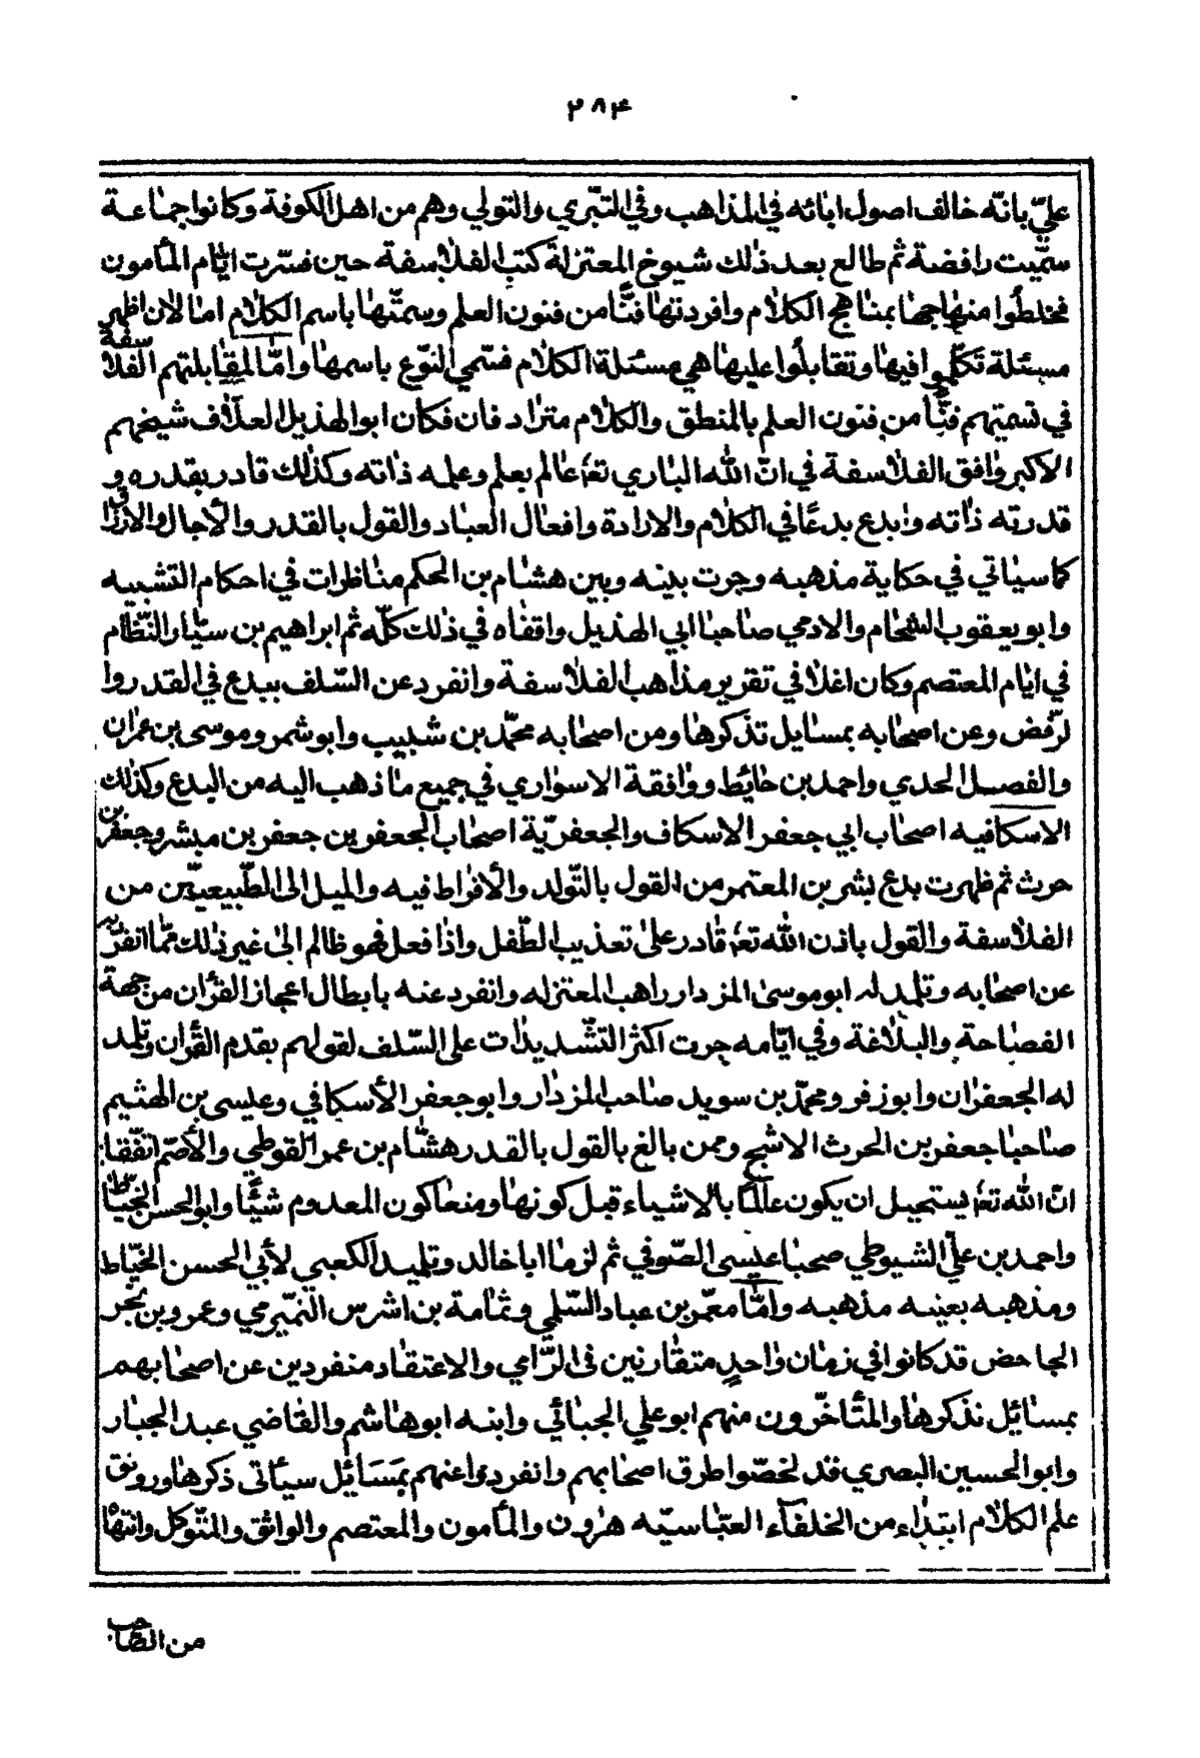 ۲۸۴
عليّ بانّه خالف اصول ابائه في المذاهب وفي التبّري والتولي وهم من اهل الكوفة وكانوا جماعة
سمّيت رافضة ثم طالع بعد ذلك شيوخ المعتزلة كتب الفلاسفة حين فسّرت ايّام المأمون
فخلطُوا منهاجها بمناهج الكلام وافردتها فنًّا من فنون العلم وسمتّها باسم الكلام اما لان اظهر
مسئلة تكلّموا فيها وتقابلُوا عليها هي مسئلة الكلام فسّمي النوّع باسمها وامّا لمقابلتهم الفلاسفة
في تسميتهم فنًّا من فنون العلم بالمنطق والكلام مترادفان فكان ابو الهذيل العلّاف شيخهم
الاكبر وافق الفلاسفة في انّ الله الباري تعا عالم بعلم وعلمه ذاته وكذلك قادر بقدره و
قدرته ذاته وابدع بدعًا في الكلام والارادة وافعال العباد والقول بالقدر والأجال والارزاق
كما سياتي في حكاية مذهبه وجرت بينه وبين هشام بن الحكم مناظرات في احكام التشبيه
وابو يعقوب الشحام والادمي صاحبا ابي الهذيل وافقاه في ذلك كلّه ثم ابراهيم بن سيّار النّظام
في ايّام المعتصم وكان اغلا في تقرير مذاهب الفلاسفة وانفرد عن السّلف ببدع في القدر وا
لرّفض وعن اصحابه بمسايل تذكرها ومن اصحابه محمّد بن شبيب وابو شمر وموسى بن عمران
والفصل الحدي واحمد بن حائط ووافقة الاسواري في جميع ما ذهب اليه من البدع وكذلك
الاسكافيه اصحاب ابي جعفر الاسكاف والجعفريّة اصحاب الجعفرين جعفر بن مبشر وجعفر بن
حرث ثم ظهرت بدع بشر بن المعتمر من القول بالتّولد والأفراط فيه والميل الى الطّبيعيّين من
الفلاسفة والقول باذن الله تعا قادر على تعذيب الطّفل واذا فعل فهو ظالم الى غير ذلك ممّا انفرد به
عن اصحابه وتلمد له ابو موسى المزدار راهب المعتزله وانفرد عنه بابطال اعجاز القرأن من جهة
الفصاحة والبلاغة وفي ايّامه جرت اكثر التشّديذات على السّلف لقولهم بقدم القرأن وتلمد
له الجعفران وابو زفر ومحمّد بن سويد صاحب المزدار وابو جعفر الأسكافي وعيسى بن الهثيم
صاحبا جعفر بن الحرث الاشبح وممن بالغ بالقول بالقدر هشام بن عمر القوطي والأصّم اتفّقا
انّ الله تعا يستحيل ان يكون عالمًا بالاشياء قبل كونها ومنعا كون المعدوم شيئًا وابو الحسن الخيّاط
واحمد بن عليّ الشيوطي صحبا عيسى الصّوفي ثم لزما ابا خالد وتلميد الكعبي لأبي الحسن الخيّاط
ومذهبه بعينه مذهبه وامّا معمّر بن عباد السّلمي وثمامة بن اشرس النميّرمي وعمرو بن بحر
الجاحض قد كانوا في زمان واحدٍ متقارنين في الرّأمي والاعتقاد منفردين عن اصحابهم
بمسائل نذكرها والمتأخّرون منهم ابو علي الجبائي وابنه ابو هاشم والقاضي عبد الجبار
وابو الحسين البصري قد لخصّوا طرق اصحابهم وانفردوا عنهم بمَسَائل سيأتى ذكرها ورونق
علم الكلام ابتداء من الخلفاء العبّاسيّه هٰرون والمأمون والمعتصم والواثق والمتوّكل وانتها
من الصاحب